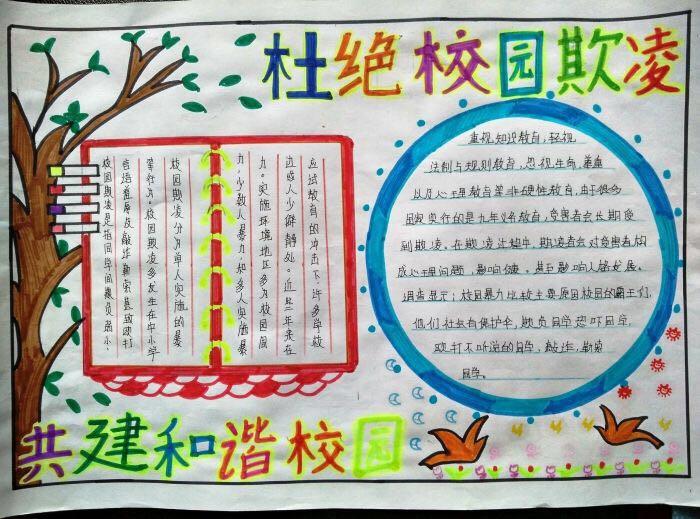 杜绝校园欺凌
校园欺凌是指同学间欺负弱小、
言语羞辱及敲诈勒索甚至殴打
等行为。校园欺凌多发生在中小学
校园欺凌分为单人实施的暴
力,少数人暴力,和多人实施暴
力。实施环境地区多为校园周
边或人少僻静处。近些年来在
应试教育的冲击下,许多学校
重视知识教育,轻视
法制与规则教育,忽视生命,
以及心理教育等非硬性教育,由于很多
国家实行的是九年义务教育,受害者会长期受
到欺凌。在欺凌过程中,欺凌者会对受害者构
成心理问题,影响健,甚至影响人格发展。
调查显示:校园暴力比较主要原因校园的霸王们,
他们社会有保护伞,欺负同学恐吓同学,
殴打不听话的同学,敲诈,勒索
同学。
共建和谐校园